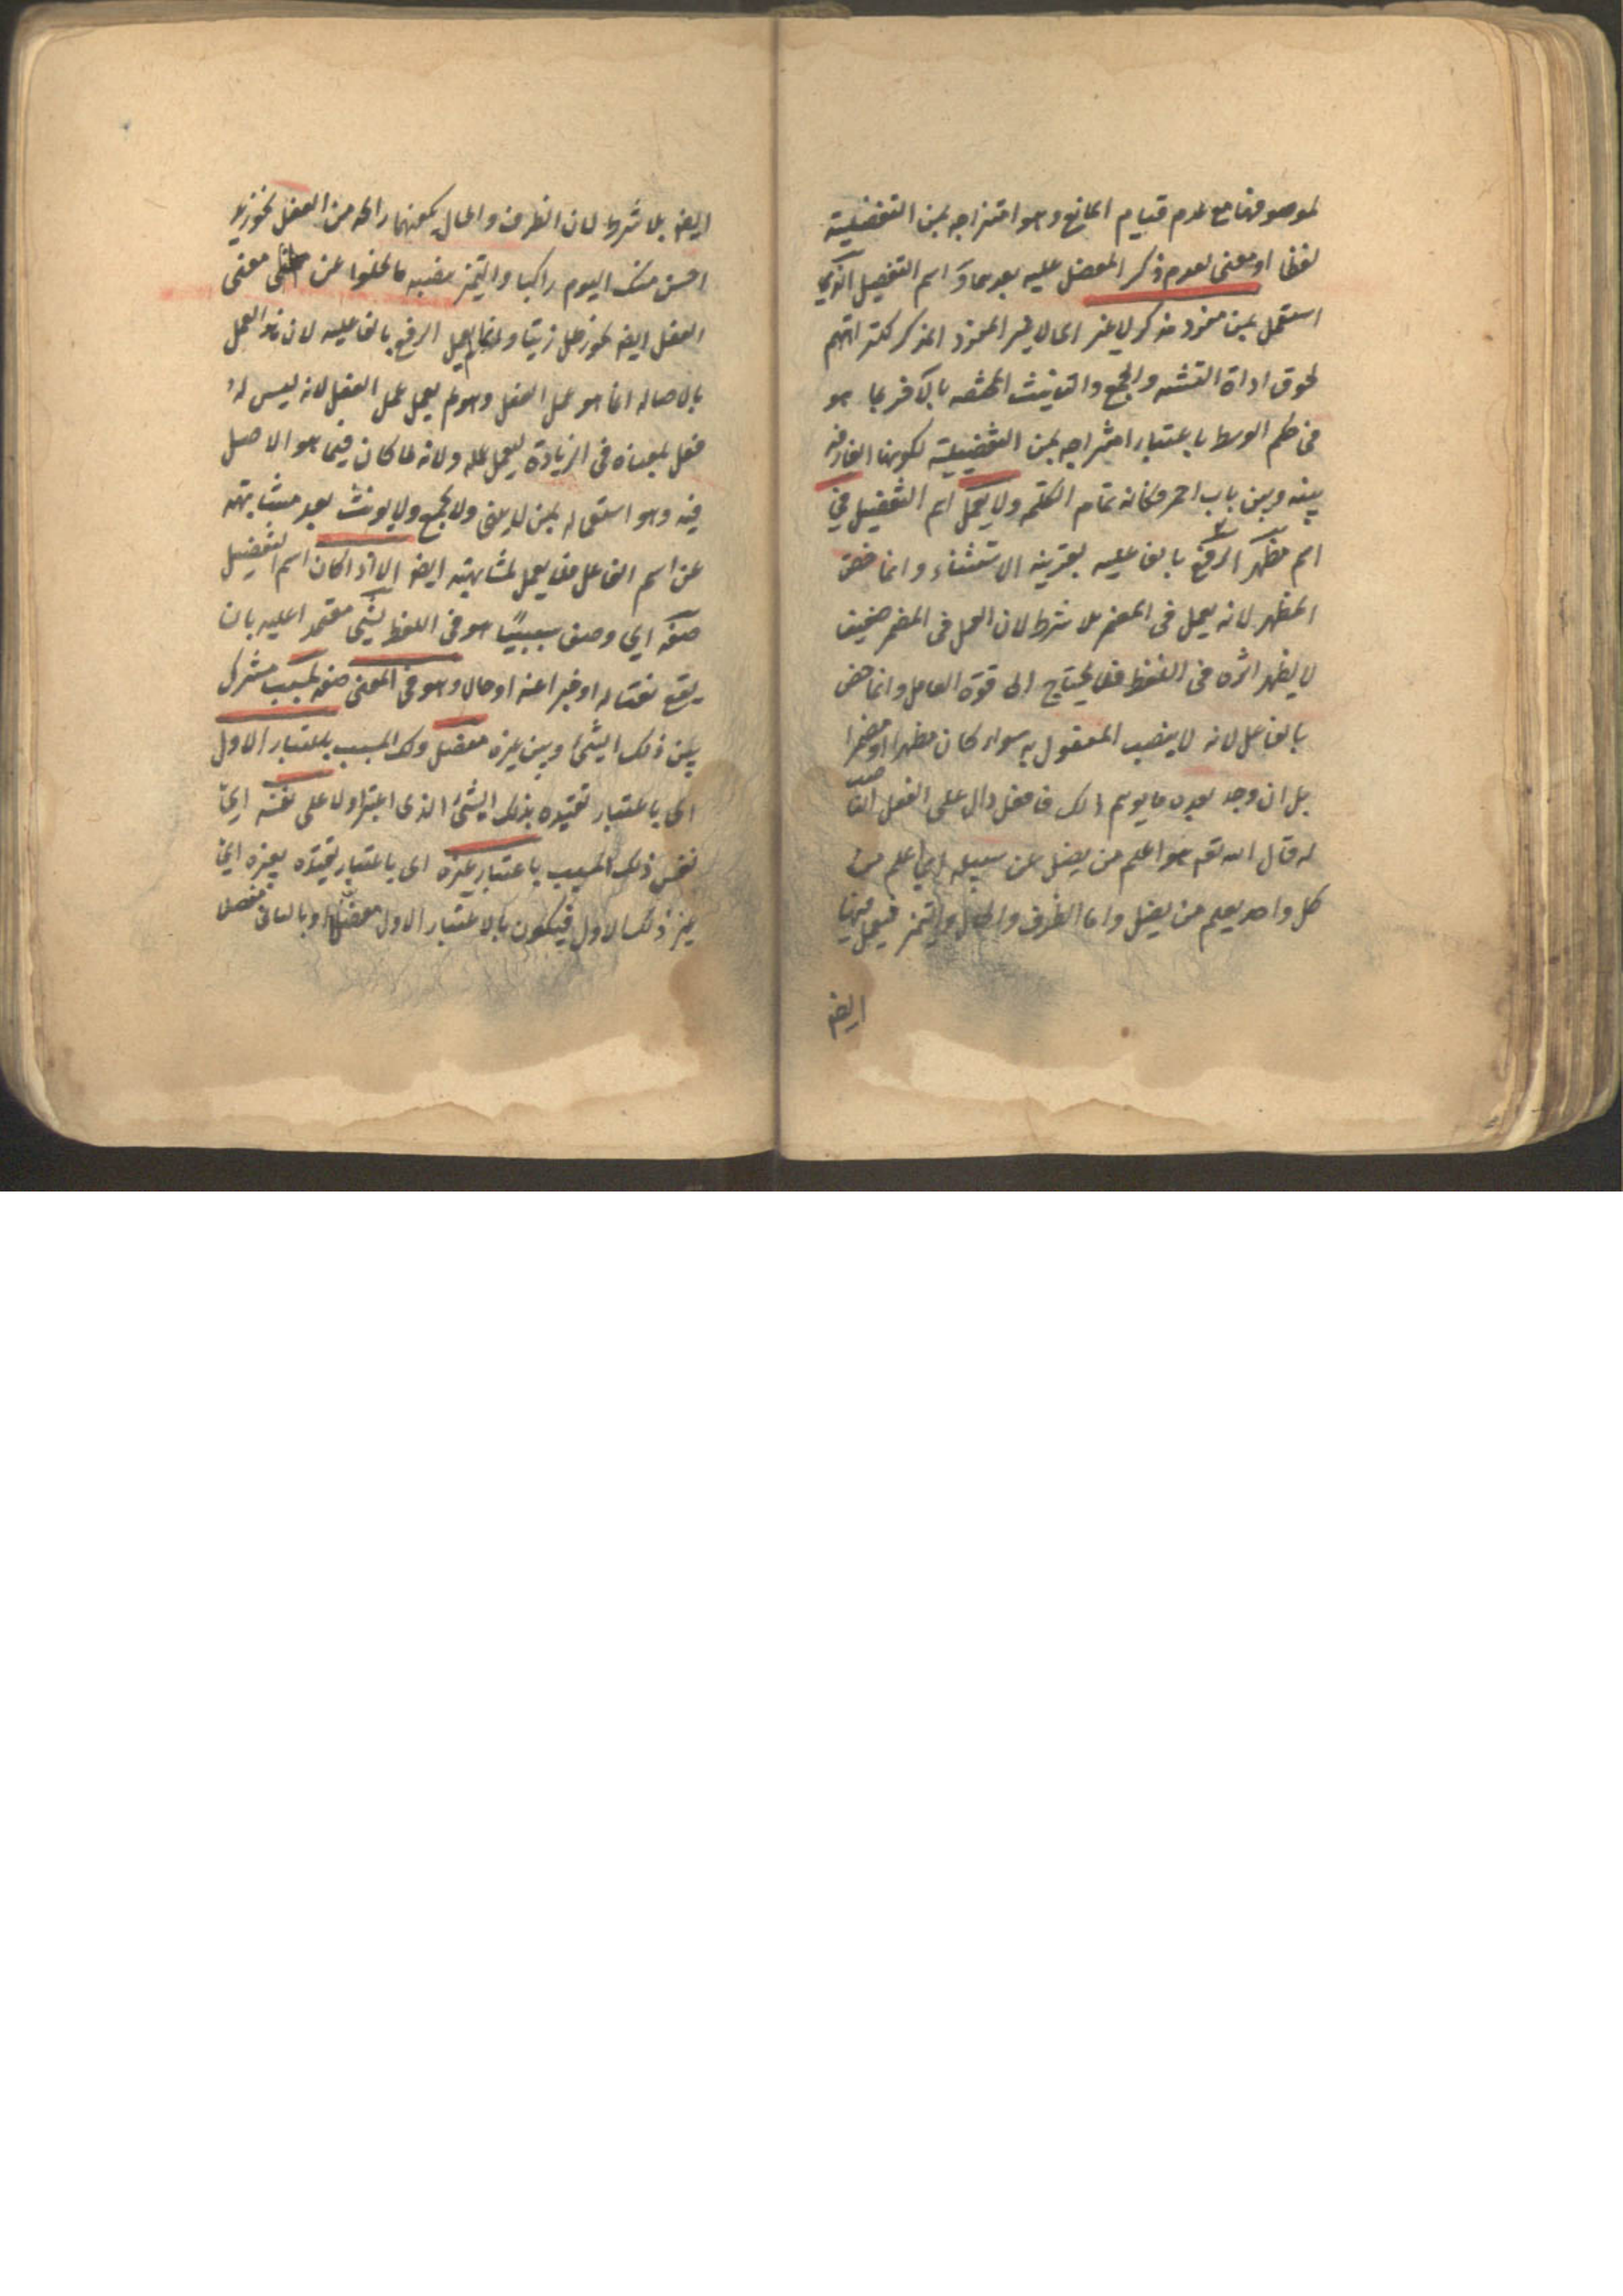 لموصوفها مع عدم قيام المانع وهو امتزاجه بمن التفضيلية
لفظا او معنى لعدم ذكر المفضل عليه بعدهما و اسم التفضيل الذي
استعمل بمن مفرد مذكر لا غير اى لا غير المفرد المذكر لكراهتهم
لحوق اداة التثنية والجمع والتانيث المختصة بالآخر بما هو
فى حكم الوسط باعتبار امتزاجه بمن التفضيلية لكونها الفارقة
بينه وبين باب احمر وكانه تمام الكلمة ولا يعمل اسم التفضيل في
اسم مظهر الرفع بالفاعلية بقرينة الاستثناء وانما خص
المظهر لانه يعمل فى المضمر بلا شرط لان العمل فى المضمر ضعيف
لا يظهر اثره فى اللفظ فلا يحتاج الى قوة العامل وانما خص
بالفاعل لانه لا ينصب المفعول به سواء كان مظهرا او مضمرا
بل ان وجد بعده ما يوهم ذلك فافعل دال على الفعل الناصب
له قال الله تعم هو اعلم من يضل عن سبيله اى اعلم من
كل واحد يعلم من يضل واما الظرف والحال والتميز فيعمل فيها
ايضه
ايضه بلا شرط لان الظرف والحال يكفيهما رائحة من الفعل نحو زيد
احسن منك اليوم راكبا والتميز ينصبه ما يخلوا عن معنى
الفعل ايضه نحو رطل زيتا وانما لم يعمل الرفع بالفاعلية لان هذا العمل
بالاصالة انما هو عمل الفعل وهو لم يعمل عمل الفعل لانه ليس له
فعل بمعناه فى الزيادة ليعمل عمله ولانه لما كان فيما هو الاصل
فيه وهو استعماله بمن لا يثنى ولا يجمع ولا يونث بعد مشابهته
عن اسم الفاعل فلا يعمل لمشابهته ايضه الا اذا كان اسم التفضيل
صفة اى وصف سببيا هو فى اللفظ لشئ معتمدا عليه بان
يقع نعتا له او خبرا عنه او حالا وهو فى المعنى صفة لمسبب مشترك
بين ذلك الشئ وبين غيره مفضل ذلك المسبب باعتبار الاول
اى باعتبار تقييده بذلك الشئ الذى اعتبر اولا على نفسه اى
نفس ذلك المسبب باعتبار غيره اى باعتبار تقييده بغيره اى
غير ذلك الاول فيكون بالاعتبار الاول مفضلا وبالثانى مفضلا